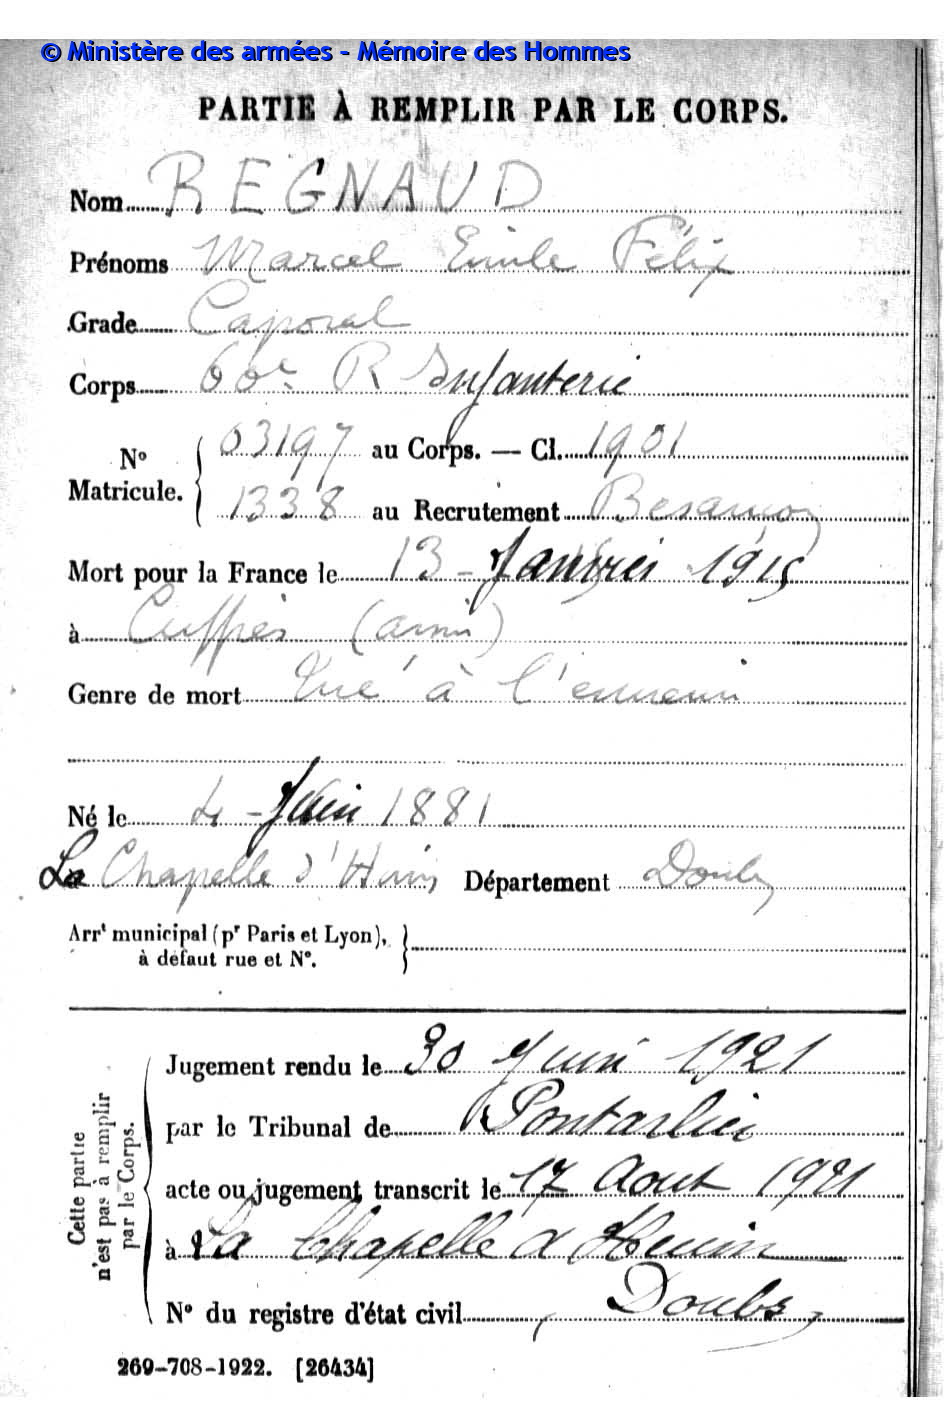 © Ministère des armées - Mémoire des Hommes
PARTIE À REMPLIR PAR LE CORPS.
Nom REGNAUD
Prénoms Marcel Emile Félix
Grade Caporal
Corps 60e R Infanterie
N° Matricule. 03197 au Corps. — Cl. 1901
1338 au Recrutement Besançon
Mort pour la France le 13 - Janvier 1915
à Cuffies (aisne)
Genre de mort Tué à l'ennemi
Né le 4 - Juin 1881
La Chapelle d'Huin Département Doubs
Arrt municipal (pr Paris et Lyon),
à défaut rue et N°.
Cette partie
n'est pas à remplir
par le Corps.
Jugement rendu le 30 Juin 1921
par le Tribunal de Pontarlier
acte ou jugement transcrit le 17 Aout 1921
à La Chapelle d Huin
N° du registre d'état civil Doubs
269-708-1922. [26434]